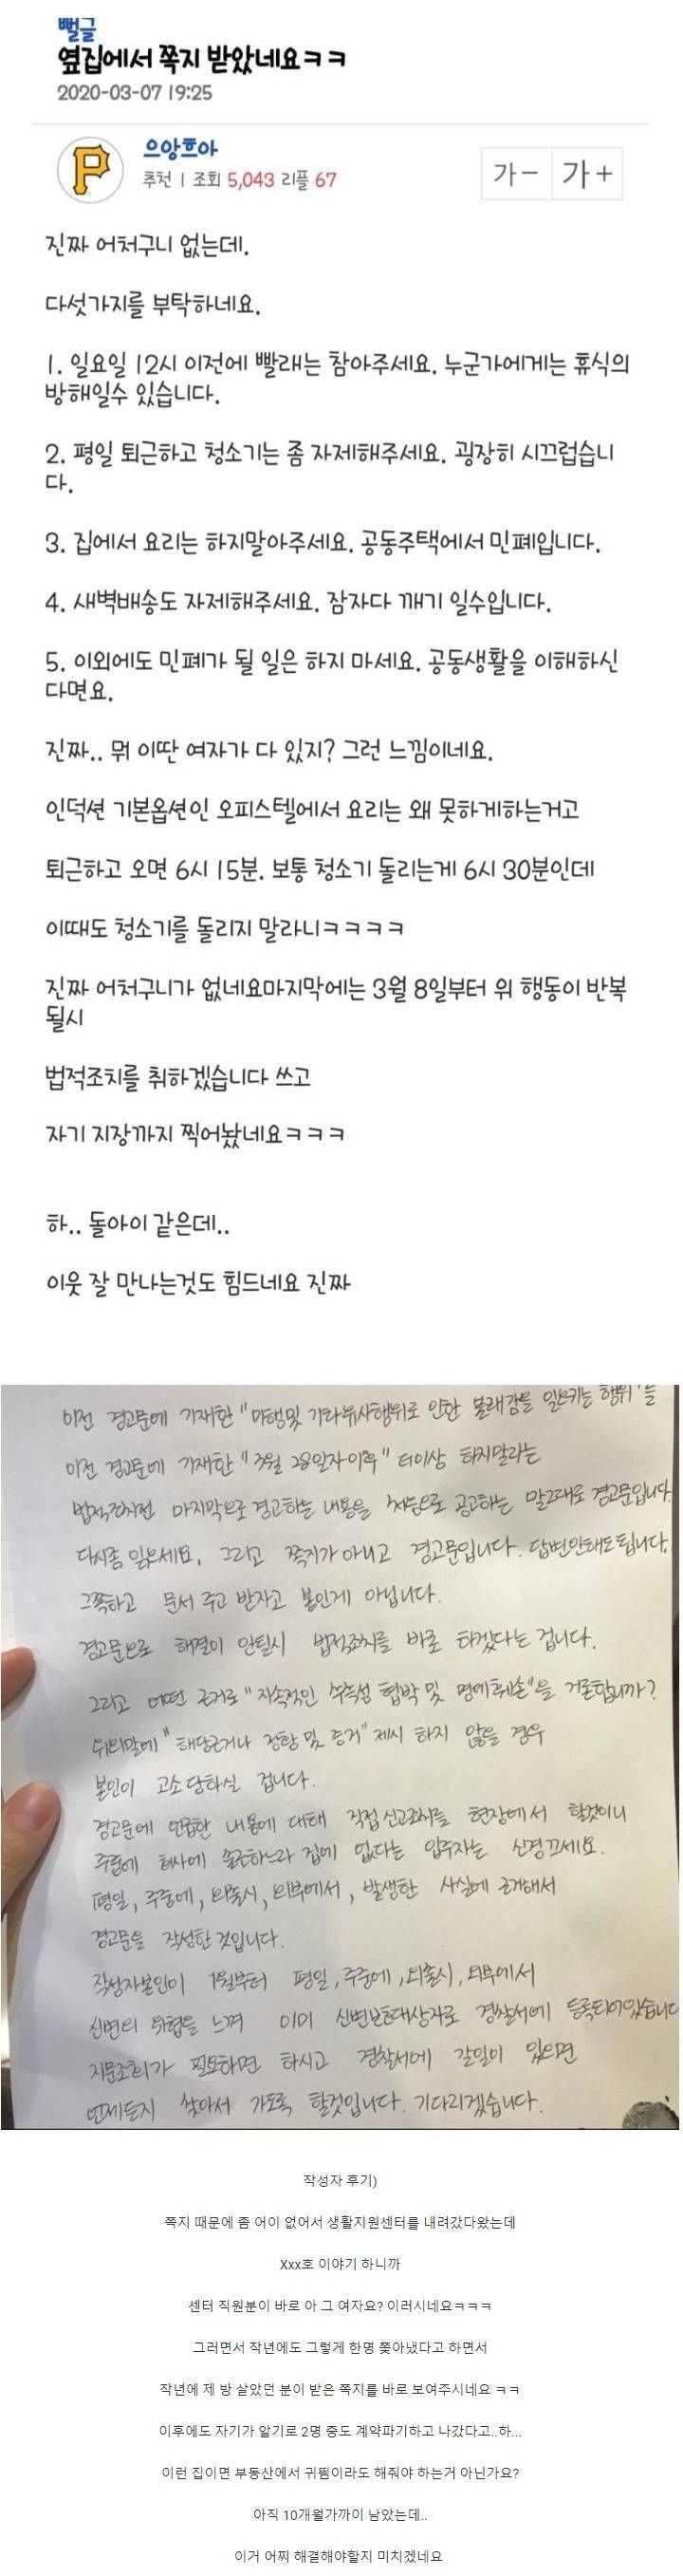 뻘글
옆집에서 쪽지 받았네요ㅋㅋ
2020-03-07 19:25
으앙흐아
추천 | 조회 5,043 리플 67
가- 가+
진짜 어처구니 없는데.
다섯가지를 부탁하네요.
1. 일요일 12시 이전에 빨래는 참아주세요. 누군가에게는 휴식의
방해일수 있습니다.
2. 평일 퇴근하고 청소기는 좀 자제해주세요. 굉장히 시끄럽습니
다.
3. 집에서 요리는 하지말아주세요. 공동주택에서 민폐입니다.
4. 새벽배송도 자제해주세요. 잠자다 깨기 일수입니다.
5. 이외에도 민폐가 될 일은 하지 마세요. 공동생활을 이해하신
다면요.
진짜.. 뭐 이딴 여자가 다 있지? 그런 느낌이네요.
인덕션 기본옵션인 오피스텔에서 요리는 왜 못하게하는거고
퇴근하고 오면 6시 15분. 보통 청소기 돌리는게 6시 30분인데
이때도 청소기를 돌리지 말라니ㅋㅋㅋㅋ
진짜 어처구니가 없네요마지막에는 3월 8일부터 위 행동이 반복
될시
법적조치를 취하겠습니다 쓰고
자기 지장까지 찍어놨네요ㅋㅋㅋ
하.. 돌아이 같은데..
이웃 잘 만나는것도 힘드네요 진짜
이전 경고문에 기재한 "미행및 기타유사행위로 인한 불쾌감을 일으키는 행위"를
이전 경고문에 기재한 "3월 28일자이후" 더이상 하지말라는
법적조치전 마지막으로 경고하는 내용을 처음으로 공고하는 말그대로 경고문입니다.
다시좀 읽으세요. 그리고 쪽지가 아니고 경고문입니다. 답변안해도됩니다.
그쪽하고 문서 주고 받자고 붙인게 아닙니다.
경고문으로 해결이 안될시 법적조치를 바로 하겠다는 겁니다.
그리고 어떤 근거로 "지속적인 수준성 협박 및 명예훼손"을 거론합니까?
위의말에 "해당근거나 정황 및 증거" 제시 하지 않을 경우
본인이 고소당하실 겁니다.
경고문에 언급한 내용에 대해 직접 신고조치를 현장에서 할것이니
주중에 회사에 출근하느라 집에 없다는 입주자는 신경끄세요.
평일, 주중에, 외출시, 외부에서, 발생한 사실에 근거해서
경고문을 작성한것입니다.
작성자본인이 1월부터 평일, 주중에, 외출시, 외부에서
신변의 위협을 느껴 이미 신변보호대상자로 경찰서에 등록되어있습니다
지문조회가 필요하면 하시고 경찰서에 갈일이 있으면
언제든지 찾아서 가도록 할것입니다. 기다리겠습니다.
작성자 후기)
쪽지 때문에 좀 어이 없어서 생활지원센터를 내려갔다왔는데
Xxx호 이야기 하니까
센터 직원분이 바로 아 그 여자요? 이러시네요ㅋㅋㅋ
그러면서 작년에도 그렇게 한명 쫒아냈다고 하면서
작년에 제 방 살았던 분이 받은 쪽지를 바로 보여주시네요 ㅋㅋ
이후에도 자기가 알기로 2명 중도 계약파기하고 나갔다고..하...
이런 집이면 부동산에서 귀띔이라도 해줘야 하는거 아닌가요?
아직 10개월가까이 남았는데..
이거 어찌 해결해야할지 미치겠네요